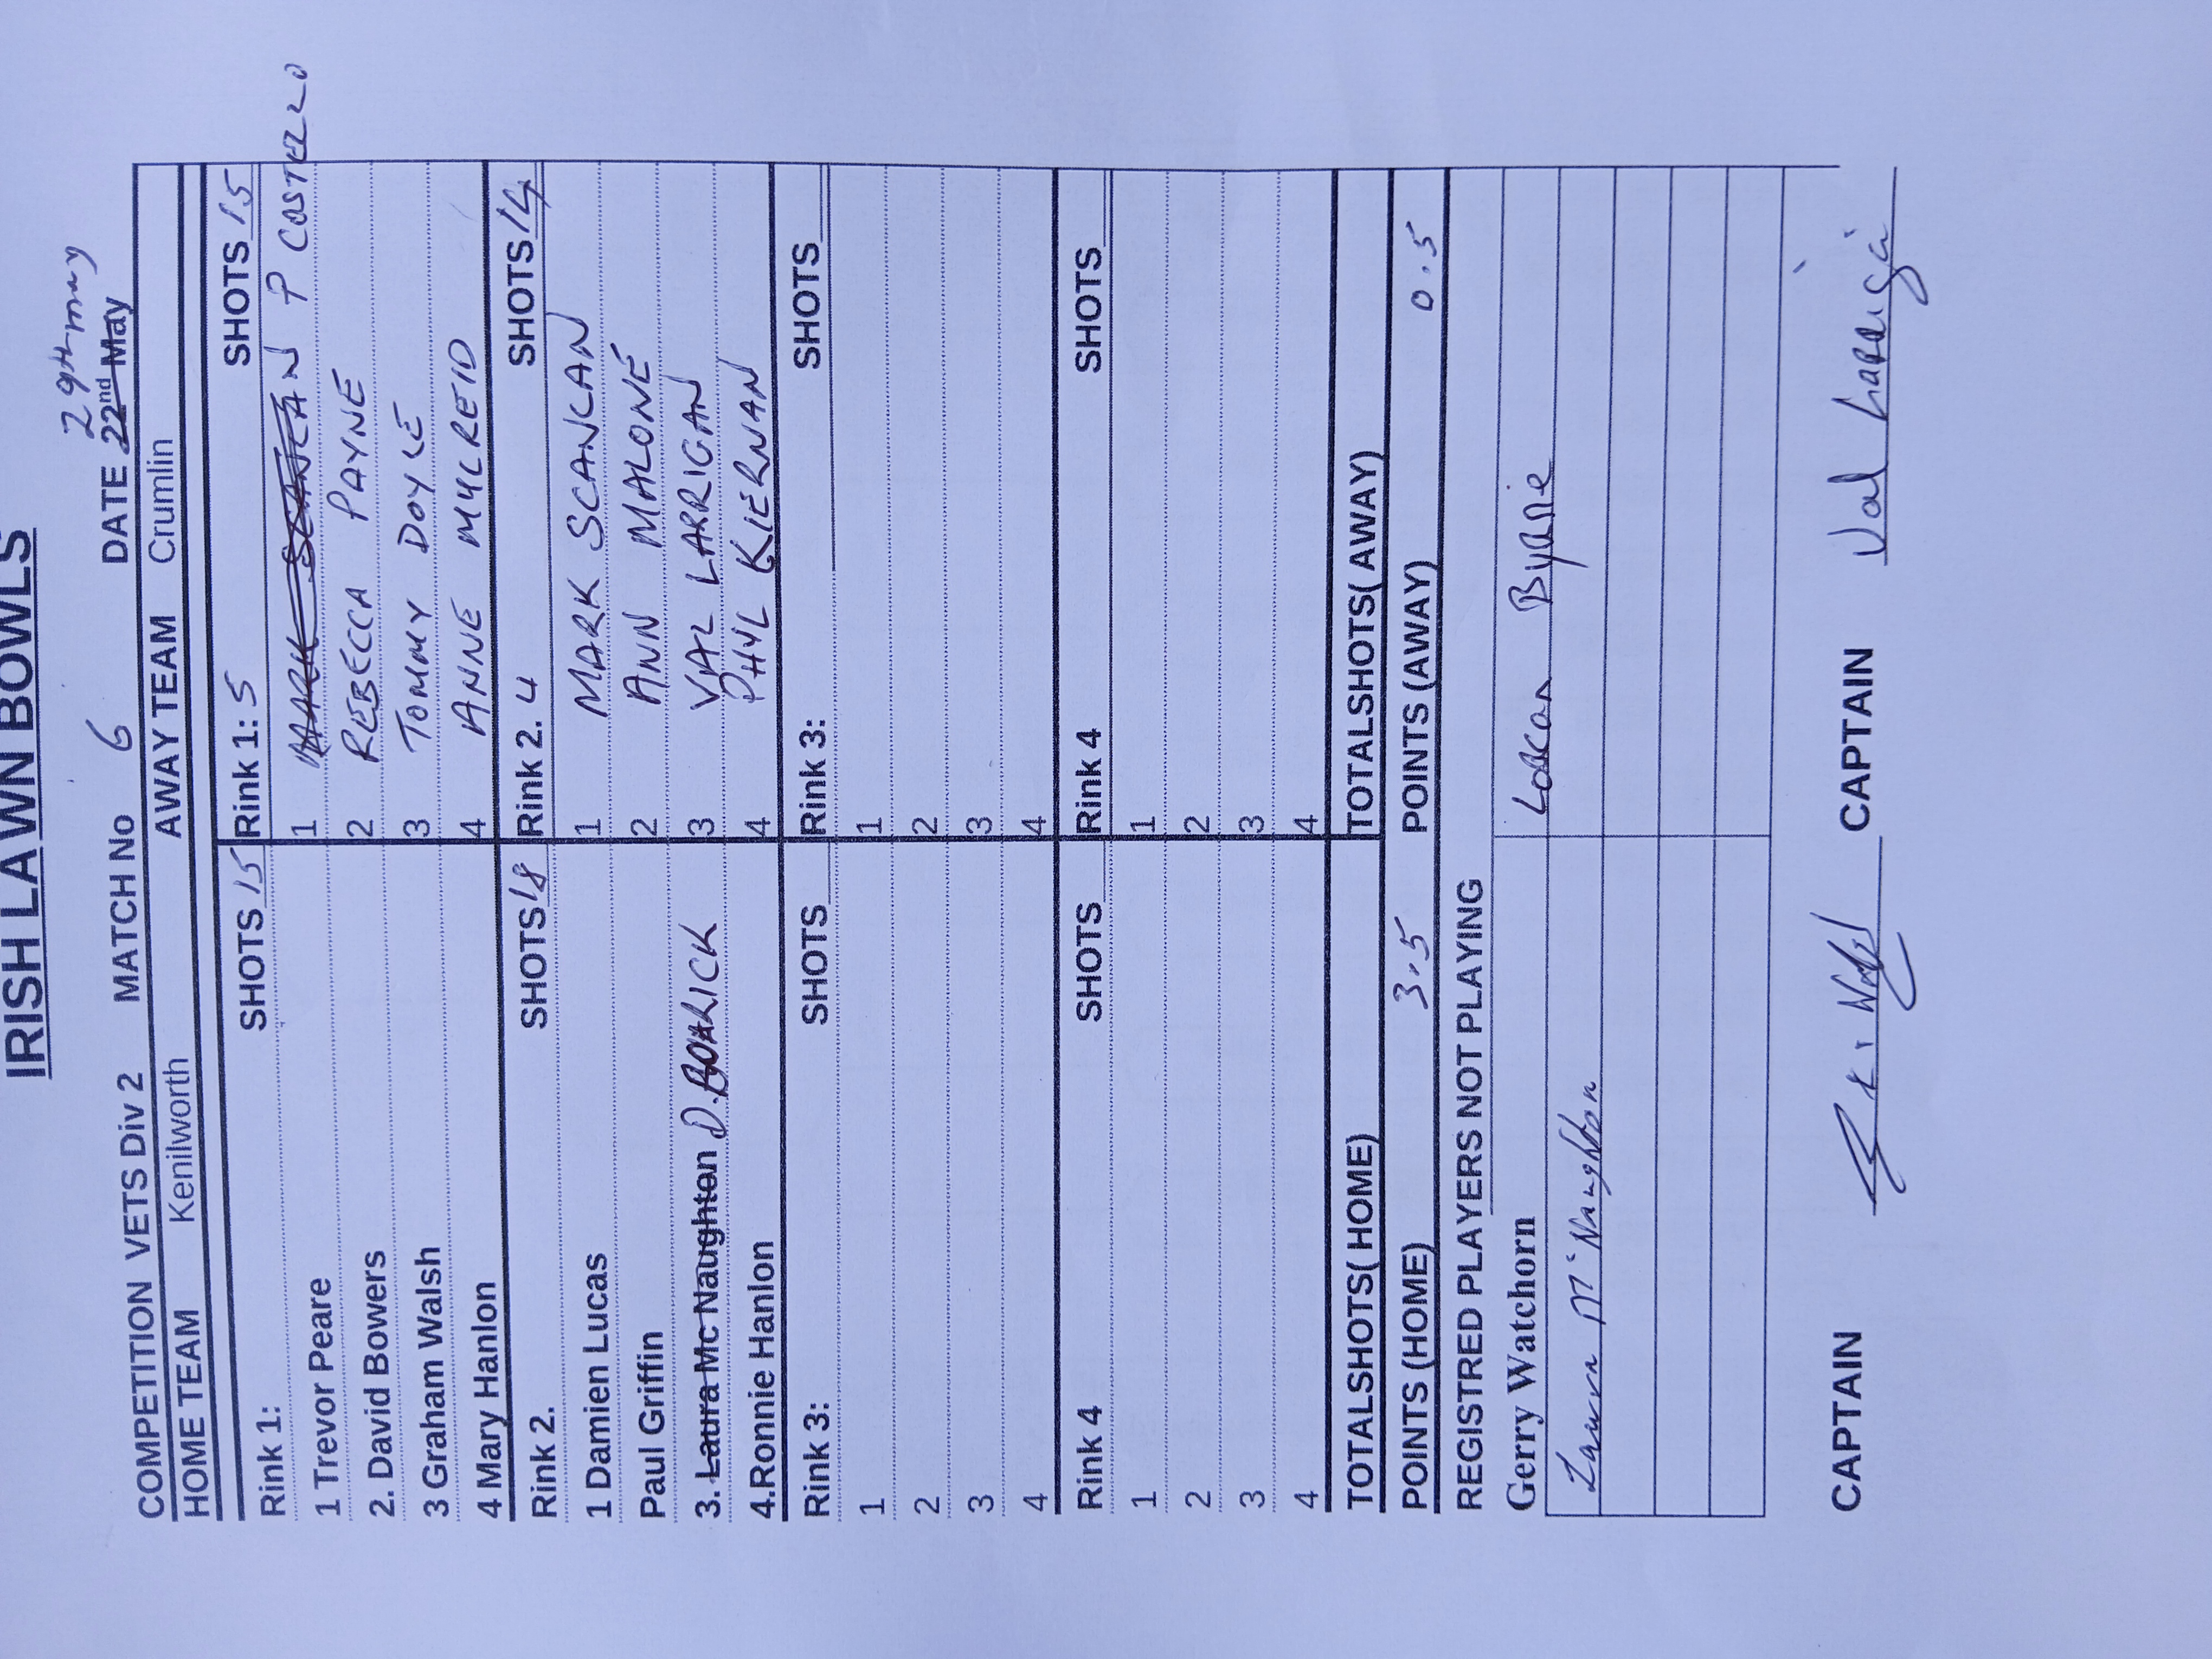 IRISH LAWN BOWLS
29th may
COMPETITION VETS Div 2 MATCH No 6 DATE 22nd May
HOME TEAM Kenilworth AWAY TEAM Crumlin
Rink 1: SHOTS 15 Rink 1: 5 SHOTS 15
1 Trevor Peare 1 MARK SCANLAN P COSTELLO
2. David Bowers 2 REBECCA PAYNE
3 Graham Walsh 3 TOMMY DOYLE
4 Mary Hanlon 4 ANNE MULREID
Rink 2. SHOTS 18 Rink 2. 4 SHOTS 14
1 Damien Lucas 1 MARK SCANLAN
Paul Griffin 2 ANN MALONE
3. Laura Mc Naughton D. 3 VAL LARRIGAN
4.Ronnie Hanlon 4 PHYL KIERNAN
Rink 3: SHOTS Rink 3: SHOTS
1 1
2 2
3 3
4 4
Rink 4 SHOTS Rink 4 SHOTS
1 1
2 2
3 3
4 4
TOTALSHOTS( HOME) TOTALSHOTS( AWAY)
POINTS (HOME) 3.5 POINTS (AWAY) 0.5
REGISTRED PLAYERS NOT PLAYING
Gerry Watchorn Lorcan Byrne
Laura Mc Naughton
CAPTAIN CAPTAIN Val